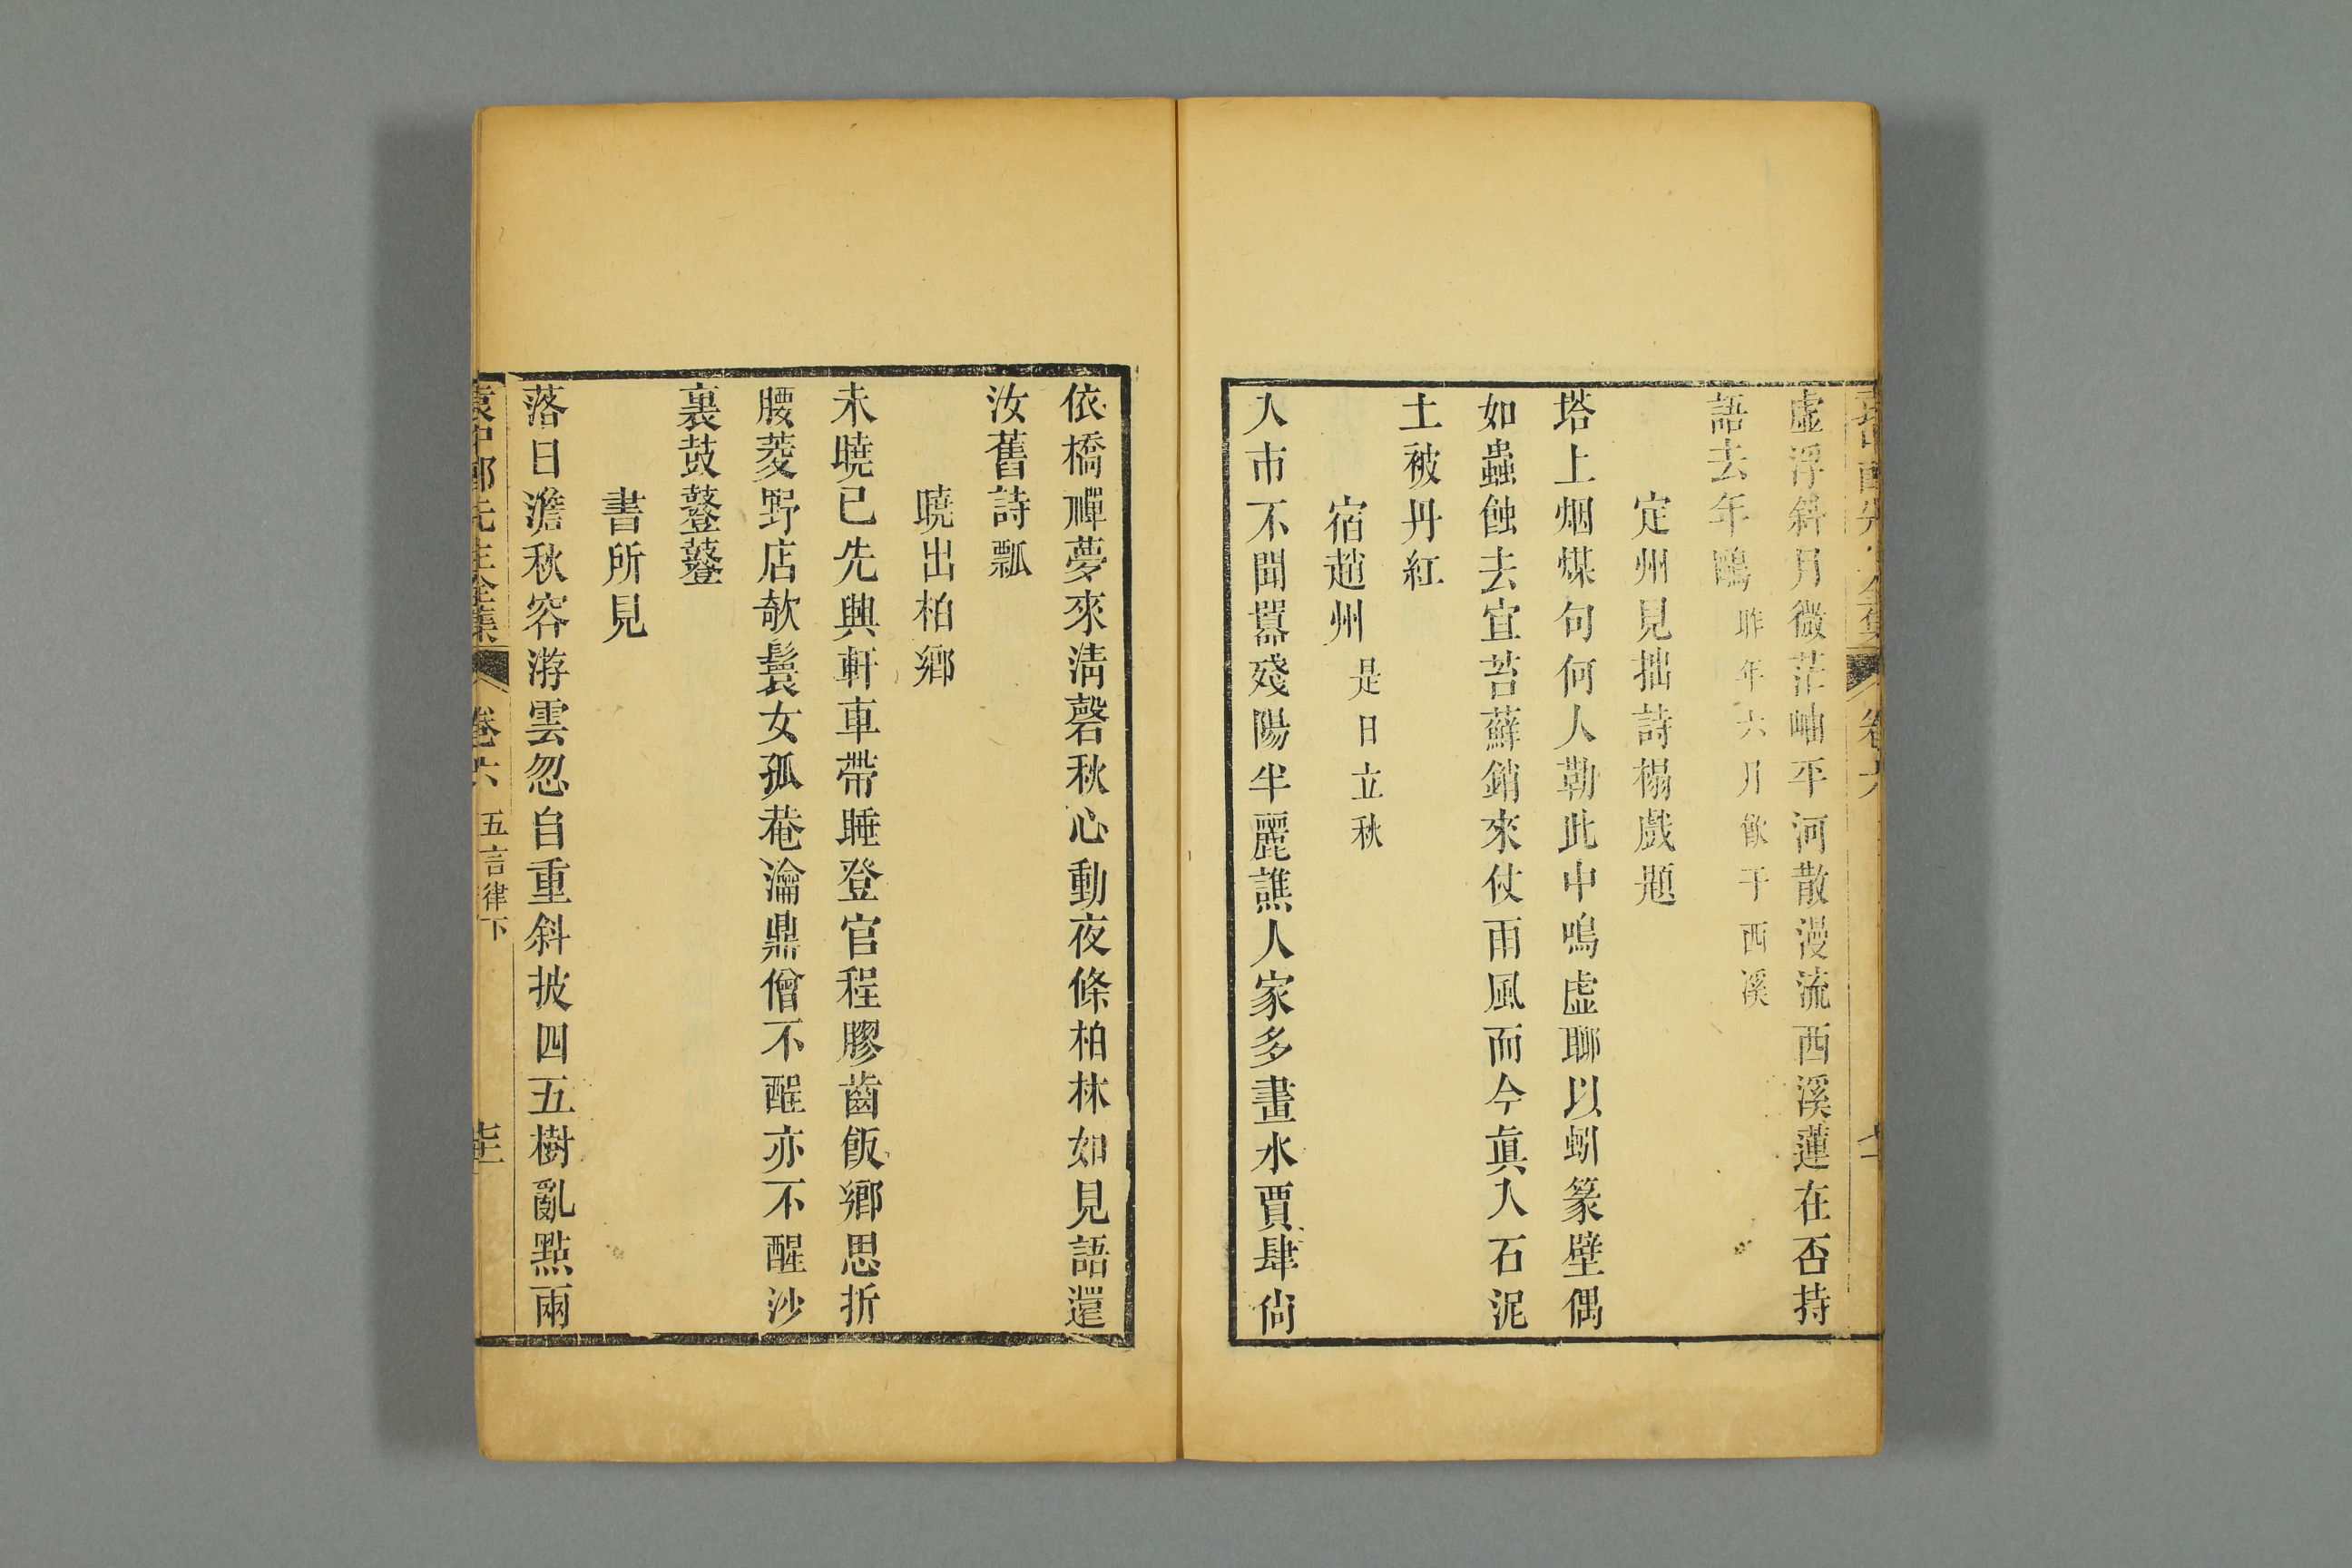 虛浮斜月微茫岫平河散漫流西溪蓮在否持
語去年鷗昨年六月飲于西溪
定州見拙詩榻戲題
塔上烟煤句何人勒此中鳴虛聊以蚓篆壁偶
如蟲蝕去宜苔蘚銷來仗雨風而今眞入石泥
土被丹紅
宿趙州是日立秋
入市不聞囂殘陽半麗譙人家多畫水賈肆尙
依橋禪夢來淸磬秋心動夜條柏林如見語還
汝舊詩瓢
曉出柏鄉
未曉已先興軒車帶睡登官程膠齒飯鄉思折
腰菱野店欹鬟女孤菴瀹鼎僧不醒亦不醒沙
裏鼓鼟鼟
書所見
落日澹秋容游雲忽自重斜披四五樹亂點兩
袁中郎先生全集 卷六 五言律下